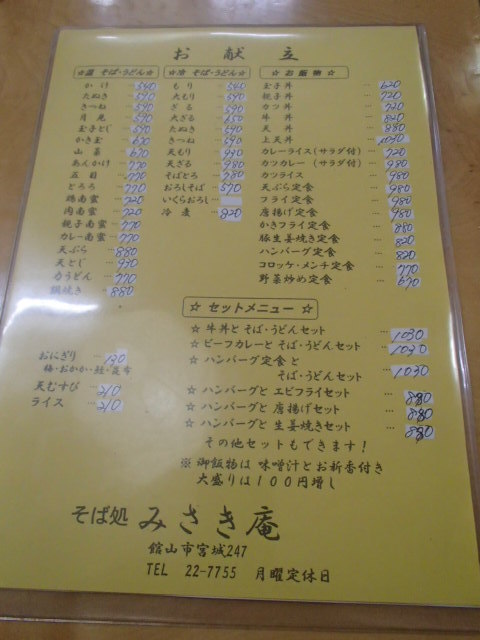 お献立
☆温 そば・うどん☆
かけ … 540
たぬき … 590
きつね … 590
月見 … 590
玉子とじ … 590
かき玉 … 670
山菜 … 670
あんかけ … 770
五目 … 770
とろろ … 770
鶏南蛮 … 720
肉南蛮 … 720
親子南蛮 … 770
カレー南蛮 … 770
天ぷら … 880
天とじ … 930
力うどん … 770
鍋焼き … 880
おにぎり … 130
梅・おかか・鮭・昆布
天むすび … 210
ライス … 210
☆冷 そば・うどん☆
もり … 540
大もり
ざる … 590
大ざる
たぬき
きつね … 690
天もり
天ざる … 980
そばとろ … 780
おろしそば … 590
いくらおろし …
冷麦 … 820
☆お飯物☆
玉子丼 … 620
親子丼 … 720
カツ丼 … 820
牛丼 … 820
天丼 … 880
上天丼 … 1030
カレーライス(サラダ付) … 720
カツカレー(サラダ付) … 980
カツライス … 980
天ぷら定食 … 980
フライ定食 … 980
唐揚げ定食 … 980
かきフライ定食 … 880
豚生姜焼き定食 … 820
ハンバーグ定食 … 820
コロッケ・メンチ定食 … 770
野菜炒め定食 … 670
☆ セットメニュー ☆
☆ 牛丼と そば・うどんセット … 1030
☆ ビーフカレーと そば・うどんセット … 1030
☆ ハンバーグ定食と
そば・うどんセット … 1030
☆ ハンバーグと エビフライセット … 880
☆ ハンバーグと 唐揚げセット … 880
☆ ハンバーグと 生姜焼きセット … 880
その他セットもできます!
※ 御飯物は 味噌汁とお新香付き
大盛りは100円増し
そば処 みさき庵
館山市宮城247
TEL 22-7755 月曜定休日